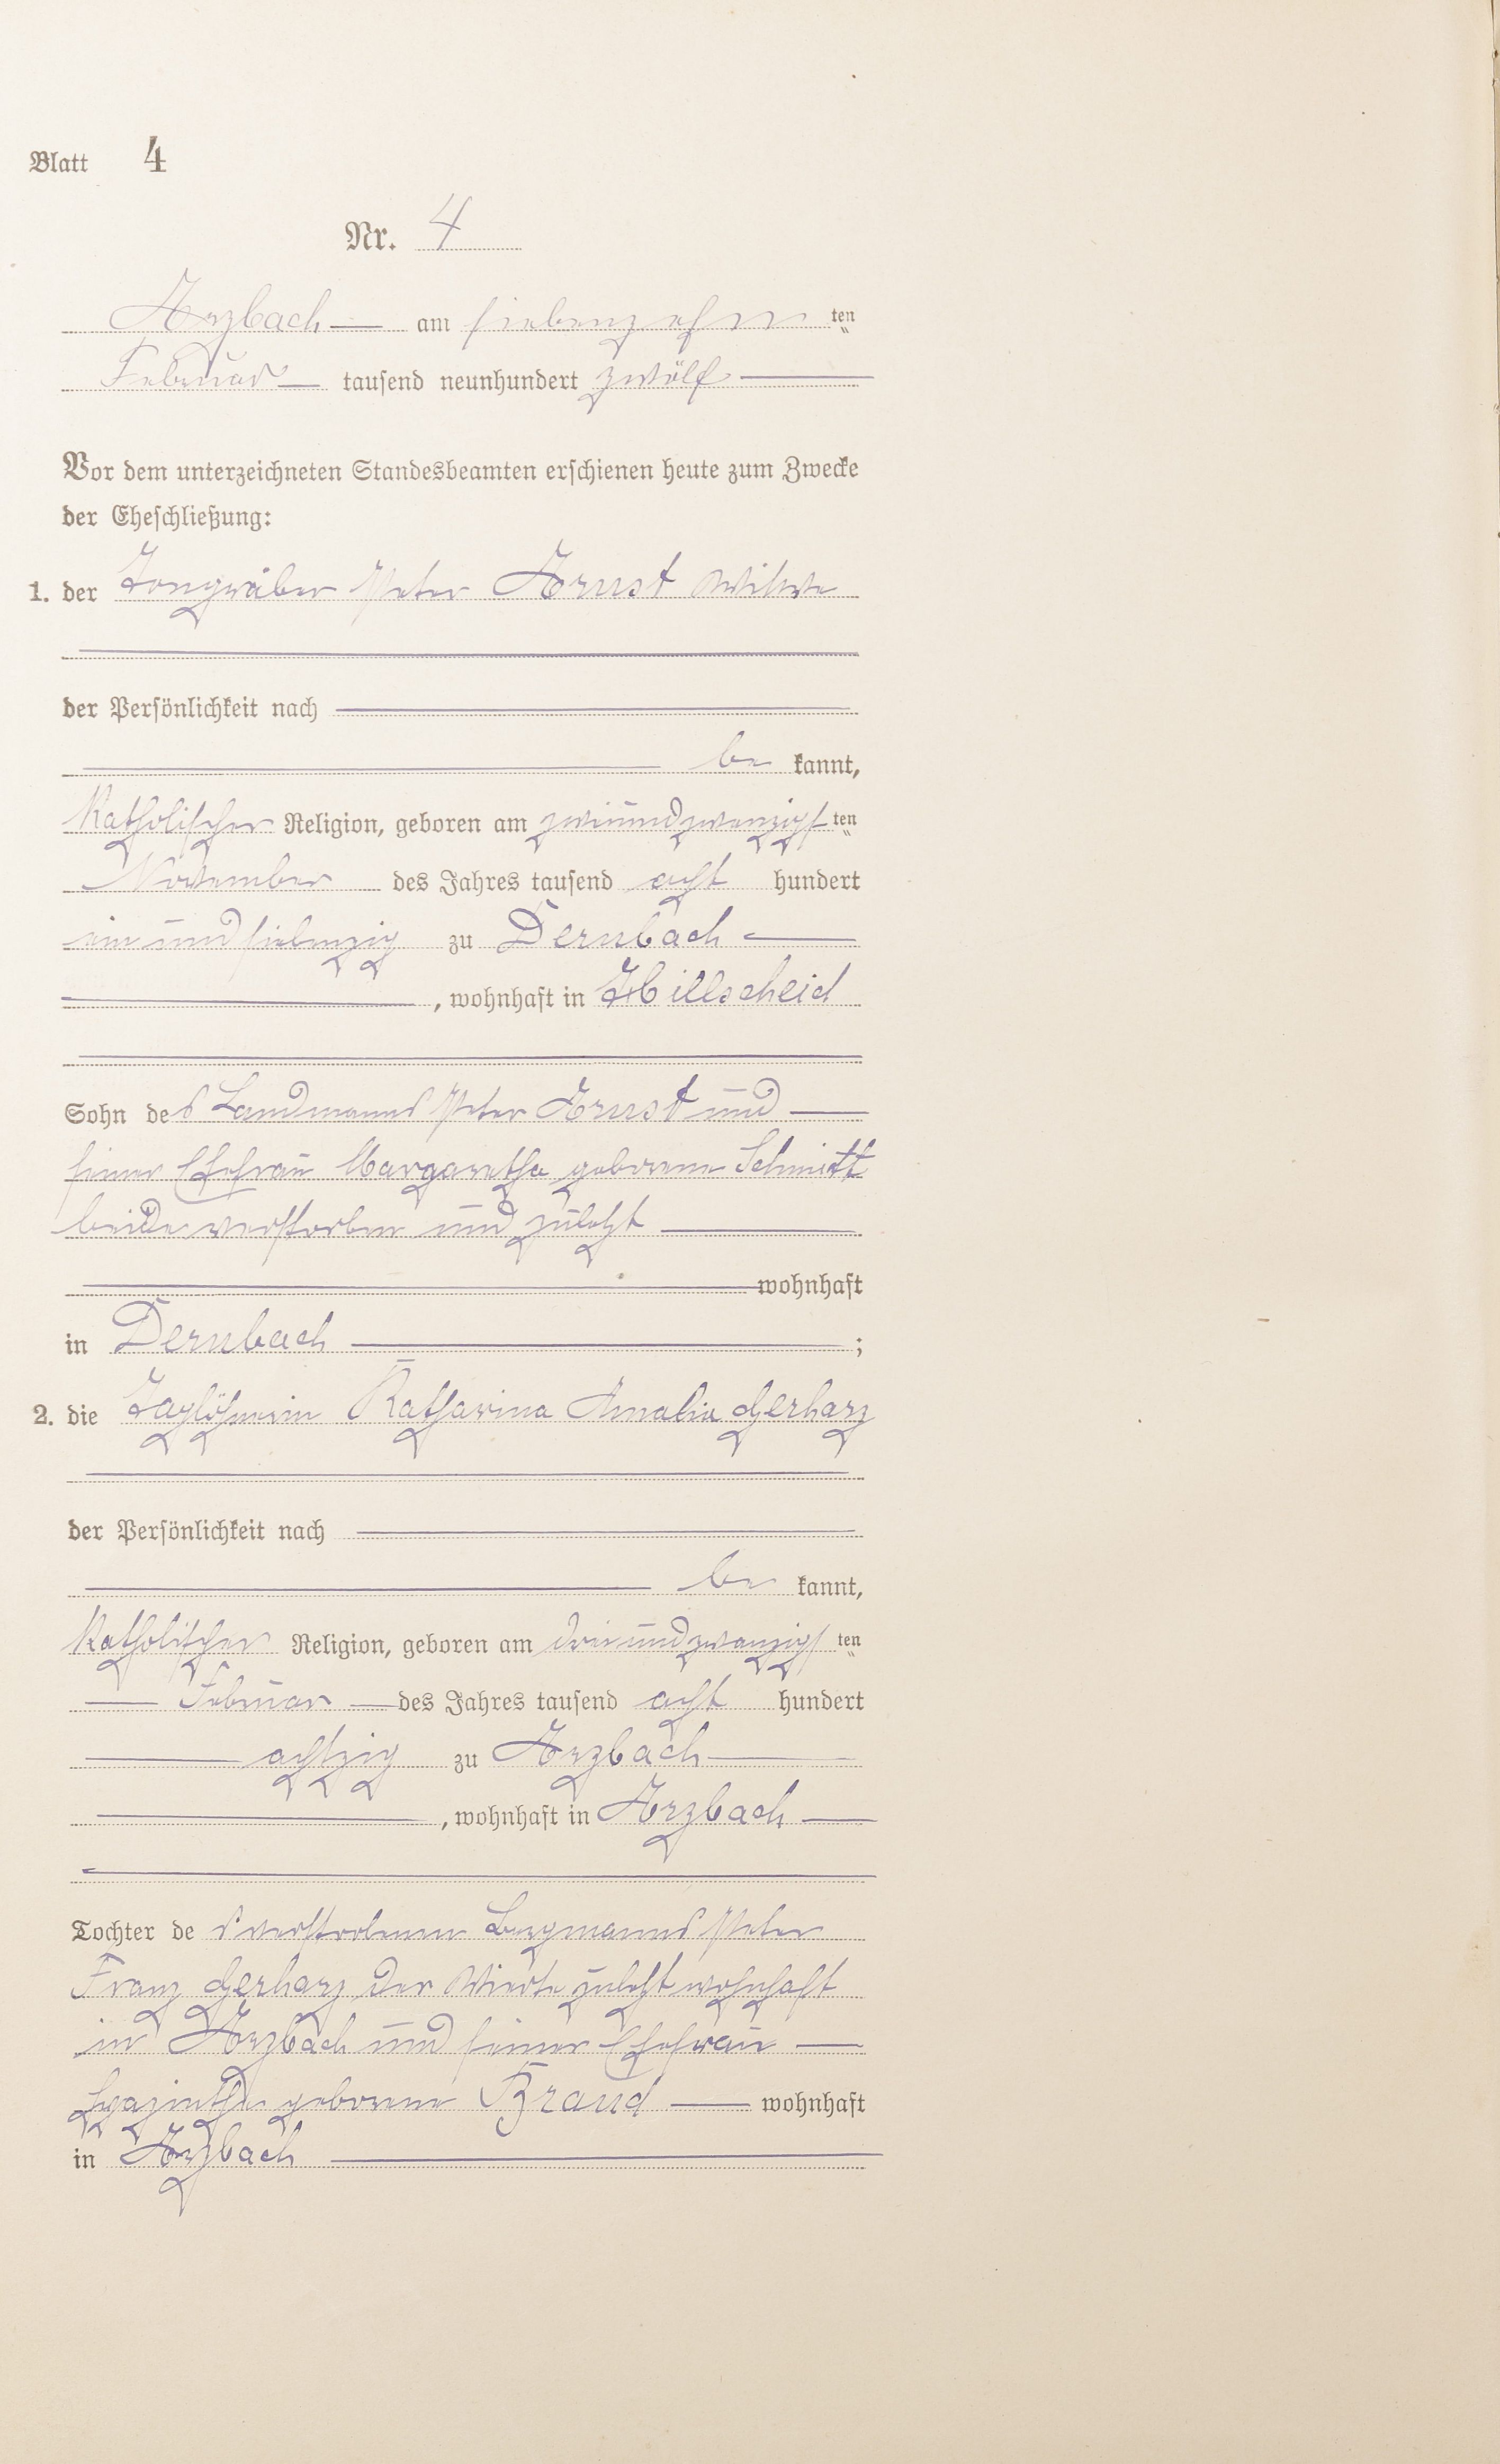 Blatt 4
Nr. 4
Arzbach am siebenzehn ten
Februar tausend neunhundert zwölf
Vor dem unterzeichneten Standesbeamten erschienen heute zum Zwecke
der Eheschließung:
1. der Tongräber Peter Ernst Witwe
der Persönlichkeit nach
be kannt,
Katholischer Religion, geboren am zweiundzwanzigs ten
November des Jahres tausend acht hundert
ein und siebenzig zu Dernbach
, wohnhaft in Hillscheid
Sohn des Landmanns Peter Ernst und
seiner Ehefrau Margaretha geborene Schmitt
beide verstorben und zuletzt
wohnhaft
in Dernbach ;
2. die Taglöhnerin Katharina Amalia Gerharz
der Persönlichkeit nach
be kannt,
Katholischer Religion, geboren am dreiundzwanzigs ten
Februar des Jahres tausend acht hundert
achtzig zu Arzbach
, wohnhaft in Arzbach
Tochter des verstorbenen Bergmanns Peter
Franz Gerharz der Vierte zuletzt wohnhaft
in Arzbach und seiner Ehefrau
geborene Brand wohnhaft
in Arzbach